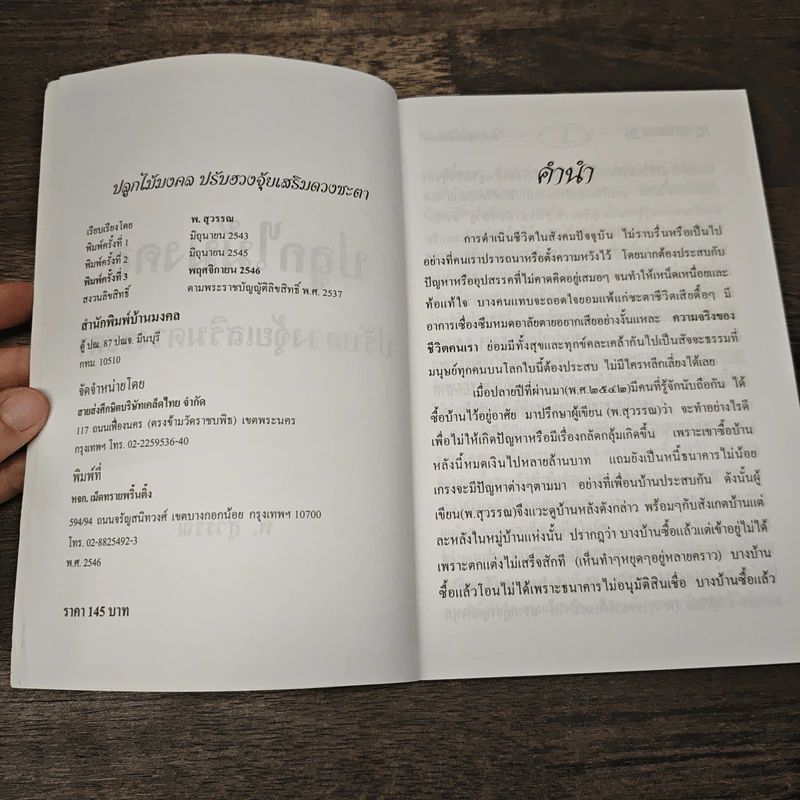 ปลูกไม้มงคล ปรับฮวงจุ้ยเสริมดวงชะตา
เรียบเรียงโดย พ. สุวรรณ
พิมพ์ครั้งที่ 1 มิถุนายน 2543
พิมพ์ครั้งที่ 2 มิถุนายน 2545
พิมพ์ครั้งที่ 3 พฤศจิกายน 2546
สงวนลิขสิทธิ์ ตามพระราชบัญญัติลิขสิทธิ์ พ.ศ. 2537
สำนักพิมพ์บ้านมงคล
ตู้ ปณ. 87 ปณจ. มีนบุรี
กทม. 10510
จัดจำหน่ายโดย
สายส่งศึกษิตบริษัทเคล็ดไทย จำกัด
117 ถนนเฟื่องนคร (ตรงข้ามวัดราชบพิธ) เขตพระนคร
กรุงเทพฯ โทร. 02-2259536-40
พิมพ์ที่
หจก. เม็ดทรายพริ้นติ้ง
594/94 ถนนจรัญสนิทวงศ์ เขตบางกอกน้อย กรุงเทพฯ 10700
โทร. 02-8825492-3
พ.ศ. 2546
ราคา 145 บาท
คำนำ
การดำเนินชีวิตในสังคมปัจจุบัน ไม่ราบรื่นหรือเป็นไป
อย่างที่คนเราปรารถนาหรือตั้งความหวังไว้ โดยมากต้องประสบกับ
ปัญหาหรืออุปสรรคที่ไม่คาดคิดอยู่เสมอๆ จนทำให้เหน็ดเหนื่อยและ
ท้อแท้ใจ บางคนแทบจะถอดใจยอมแพ้แก่ชะตาชีวิตเสียดื้อๆ มี
อาการเซื่องซึมหมดอาลัยตายอยากเสียอย่างงั้นแหละ ความจริงของ
ชีวิตคนเรา ย่อมมีทั้งสุขและทุกข์คละเคล้ากันไปเป็นสัจจะธรรมที่
มนุษย์ทุกคนบนโลกใบนี้ต้องประสบ ไม่มีใครหลีกเลี่ยงได้เลย
เมื่อปลายปีที่ผ่านมา(พ.ศ.๒๕๔๒)มีคนที่รู้จักนับถือกัน ได้
ซื้อบ้านไว้อยู่อาศัย มาปรึกษาผู้เขียน (พ.สุวรรณ)ว่า จะทำอย่างไรดี
เพื่อไม่ให้เกิดปัญหาหรือมีเรื่องกลัดกลุ้มเกิดขึ้น เพราะเขาซื้อบ้าน
หลังนี้หมดเงินไปหลายล้านบาท แถมยังเป็นหนี้ธนาคารไม่น้อย
เกรงจะมีปัญหาต่างๆตามมา อย่างที่เพื่อนบ้านประสบกัน ดังนั้นผู้
เขียน(พ.สุวรรณ)จึงแวะดูบ้านหลังดังกล่าว พร้อมๆกับสังเกตบ้านแต่
ละหลังในหมู่บ้านแห่งนั้น ปรากฎว่า บางบ้านซื้อแล้วแต่เข้าอยู่ไม่ได้
เพราะตกแต่งไม่เสร็จสักที (เห็นทำๆหยุดๆอยู่หลายคราว) บางบ้าน
ซื้อแล้วโอนไม่ได้เพราะธนาคารไม่อนุมัติสินเชื่อ บางบ้านซื้อแล้ว